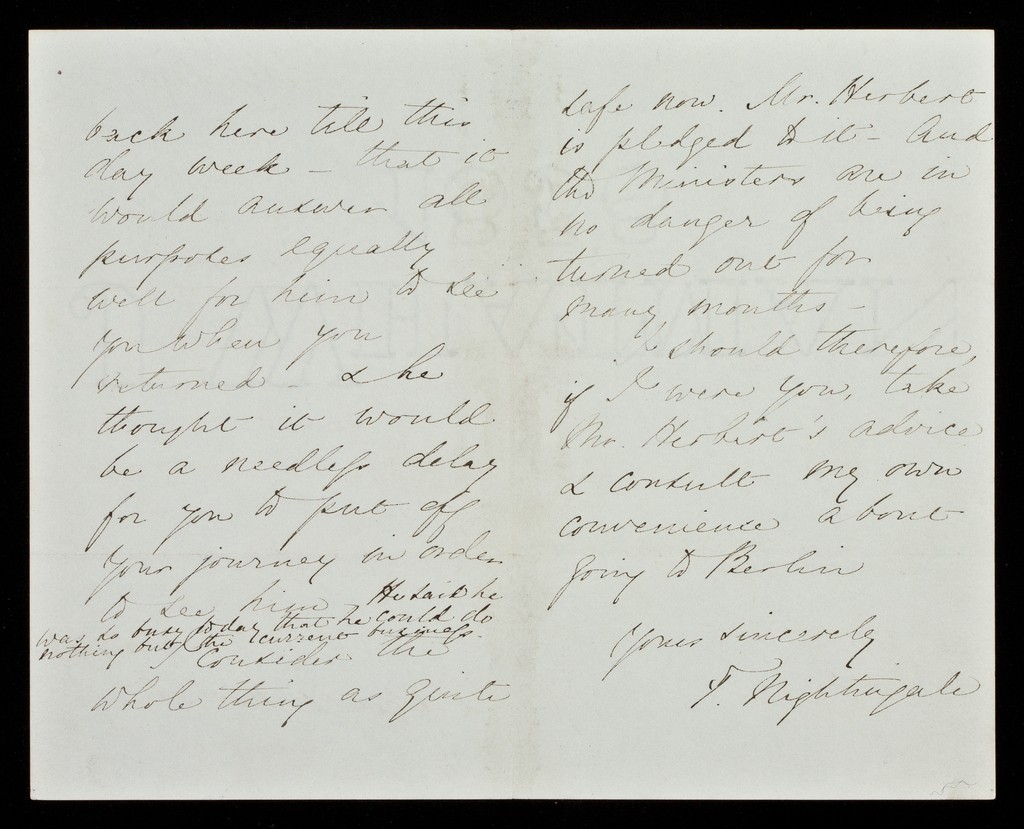 back here till this
day week - that it
would answer all
purposes equally
well for him to see
you when you
returned - & he
thought it would
be a needless delay
for you to put off
your journey in order
to see him He said he
was so busy today that he could do
nothing but the current business.
I consider the
whole thing as quite
safe now. Mr. Herbert
is pledged to it - And
the Ministers are in
no danger of being
turned out for
many months -
I should therefore,
if I were you, take
Mr. Herbert's advice
& consult my own
convenience about
going to Berlin
Yours sincerely
F. Nightingale